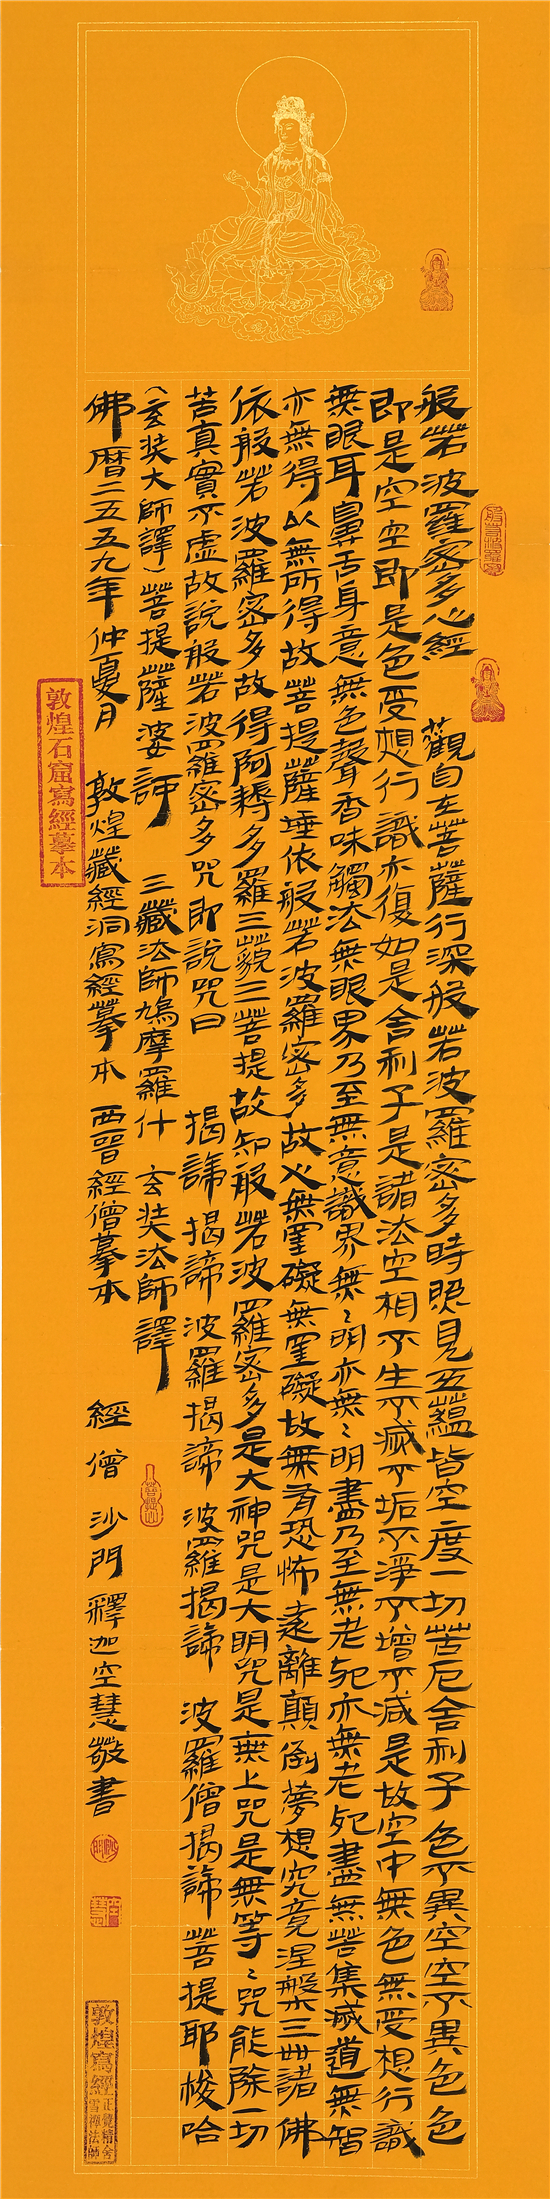 般若波羅密多心經 觀自在菩薩行深般若波羅密多時照見五蘊皆空度一切苦厄舍利子色不異空空不異色色
即是空空即是色受想行識亦復如是舍利子是諸法空相不生不滅不垢不淨不增不減是故空中無色無受想行識
無眼耳鼻舌身意無色聲香味觸法無眼界乃至無意識界無〻明亦無〻明盡乃至無老死亦無老死盡無苦集滅道無智
亦無得以無所得故菩提薩埵依般若波羅密多故心無罣礙無罣礙故無有恐怖遠離顛倒夢想究竟涅槃三世諸佛
依般若波羅密多故得阿耨多羅三藐三菩提故知般若波羅密多是大神咒是大明咒是無上咒是無等〻咒能除一切
苦真實不虛故說般若波羅密多咒即說咒曰 揭諦揭諦波羅揭諦 波羅揭諦 波羅僧揭諦菩提耶梭哈
(玄奘大師譯)菩提薩婆訶 三藏法師鳩摩羅什 玄奘法師譯
佛曆二五五九年仲夏月 敦煌藏經洞寫經摹本 西晉經僧摹本 經僧沙門釋迦空慧敬書
敦煌石窟寫經摹本
敦煌寫經
正覺精舍
雪禪法師